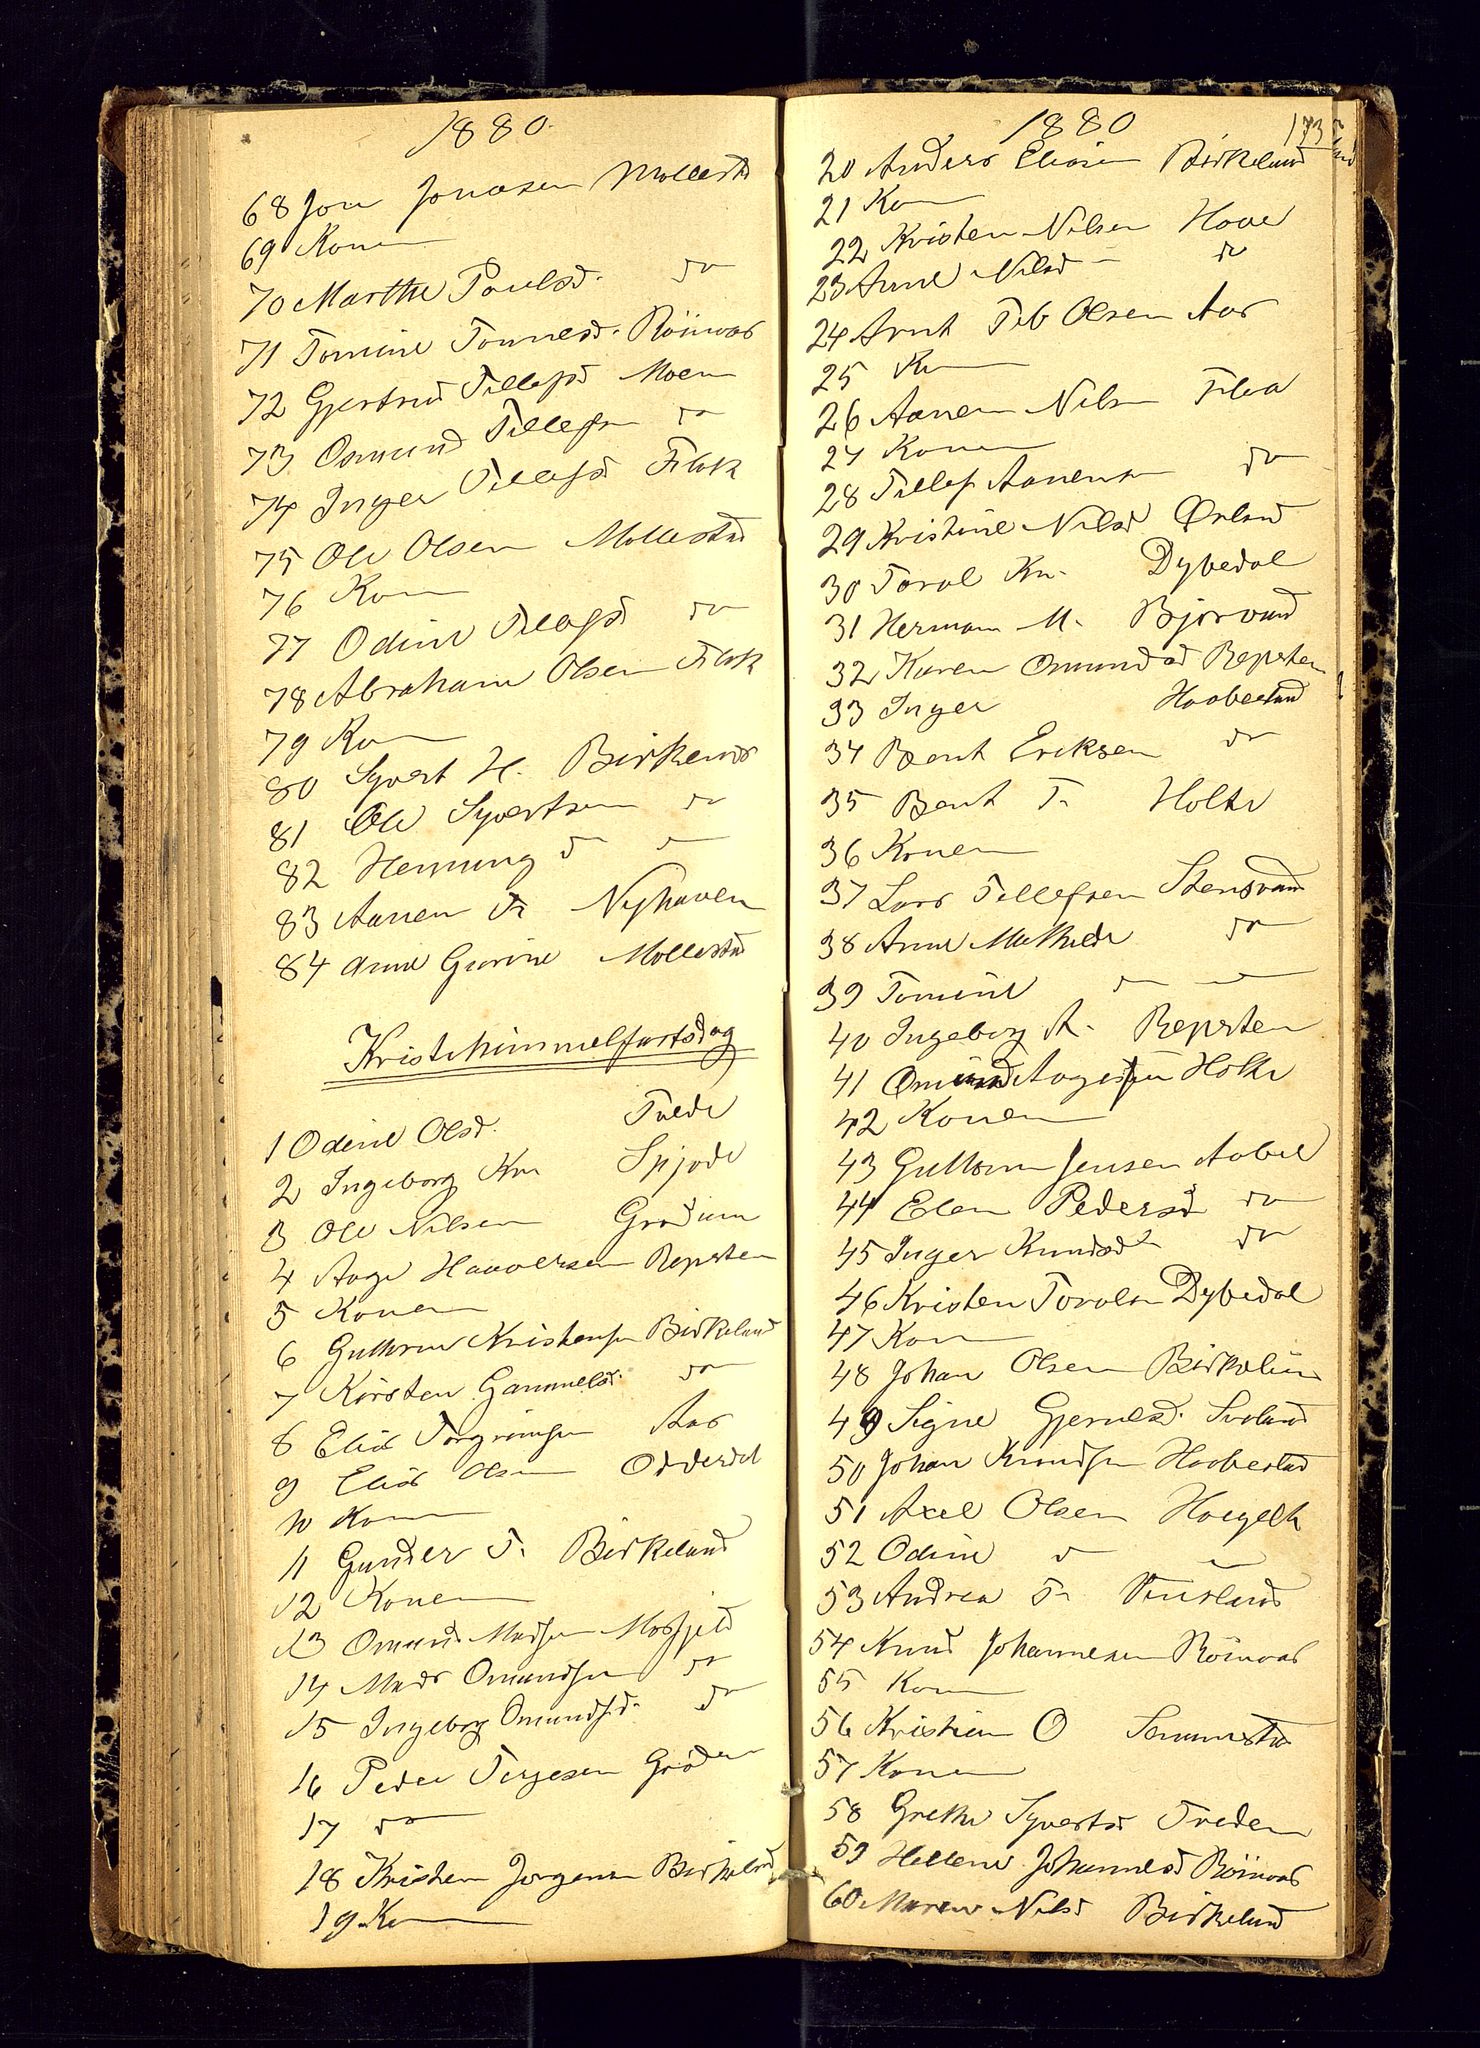 1880.
68 Jon Jonasen Mollestd
69 Konen
70 Marthe Poulsd. do
71 Tomine Tonnesd. Röinaas
72 Gjertrud Tellefsd Moen
73 Osmund Tellefsen do
74 Inger Tellefsd Flak
75 Ole Olsen Mollestad
76 Kon
77 Odine Tellefsd do
78 Abraham Olsen Flak
79 Kon
80 Syvert H. Birkenes
81 Ole Syvertsen do
82 Henning d
83 Aanen Nyhaven
84 Anne Gurine Mollestad
Kristihimmelfartsdag
1 Odine Olsd. Tvede
2 Ingeborg Kn Spjode
3 Ole Nilsen Grødum
4 Aage Haavorsen Repsten
5 Konen
6 Guttorm Kristensen Birkeland
7 Kirsten Gammelsd. do
8 Elias Torgrimsen Aas
9 Elias Olsen Odderdal
10 Kon
11 Gunder T. Birkeland
12 Konen
13 Omund Madsen Mosfjeld
14 Mads Omundsen do
15 Ingeborg Omundsd. do
16 Peder Terjesen Gröden
17 do
18 Kristen Jorgensen Birkeland
19 Kon
1880
173
20 Anders Eliasen Birkeland
21 Kon
22 Kristen Nilsen Hove
23 Anne Nilsd do
24 Arnt Olsen Aas
25 Kn
26 Aanen Nilsen Flaa
27 Konen
28 Tellef Aanensen do
29 Kristine Nilsd
30 Torol Kn. Dybedal
31 Herman M. Bjorvand
32 Karen Omundsd Repsten
33 Inger Haabestad
34 Bent Eriksen do
35 Bent T. Holte
36 Konen
37 Lars Tellefsen Stensvand
38 Anne Mathilde do
39 Tomine
40 Ingeborg A. Repsten
41 Omund Aagesen Holte
42 Konen
43 Guttorm Jensen Aabel
44 Elen Pedersd do
45 Inger Knudsd do
46 Kristen Torolsn Dybedal
47 Kon
48 Johan Olsen Birkeland
49 Signe Gjerulsd. Svaland
50 Johan Knudsen Haabestad
51 Axel Olsen Haegelk
52 Odine d
53 Andrea T.
54 Knud Johannesen Röinaas
55 Kon
56 Kristian O
57 Konen
58 Grethe Syvertsd Treden
59 Hellene Johannesd Röinaas
60 Maren Nilsd Birkeland